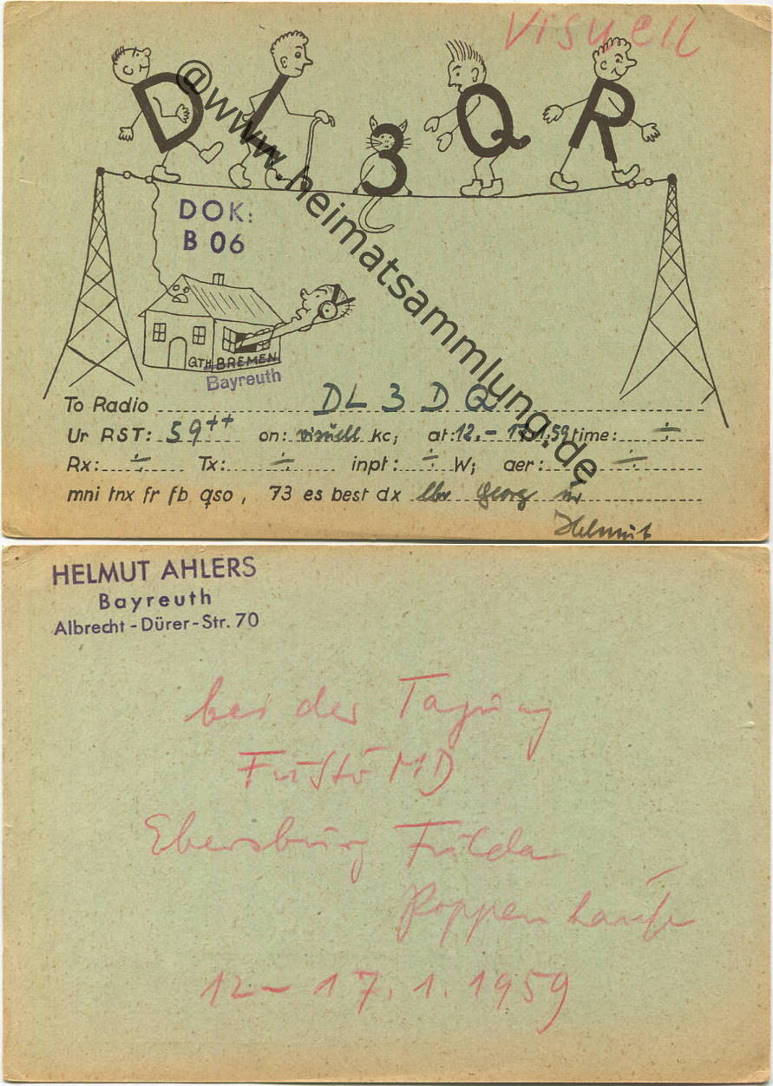 Visuell
DL3QR
@www.heimatsammlung.de
DOK:
B 06
QTH BREMEN
Bayreuth
To Radio DL 3 DQ
Ur RST: 59++ on: visuell kc; at: 12.-17.1.59 time: ÷
Rx: ÷ Tx: ÷ inpt: ÷ W; aer: ÷
mni tnx fr fb qso, 73 es best dx lbr Georg
Helmut
HELMUT AHLERS
Bayreuth
Albrecht-Dürer-Str. 70
bei der Tagung
FuStö MD
Ebersburg Fulda
Poppenhausen
12-17.1.1959